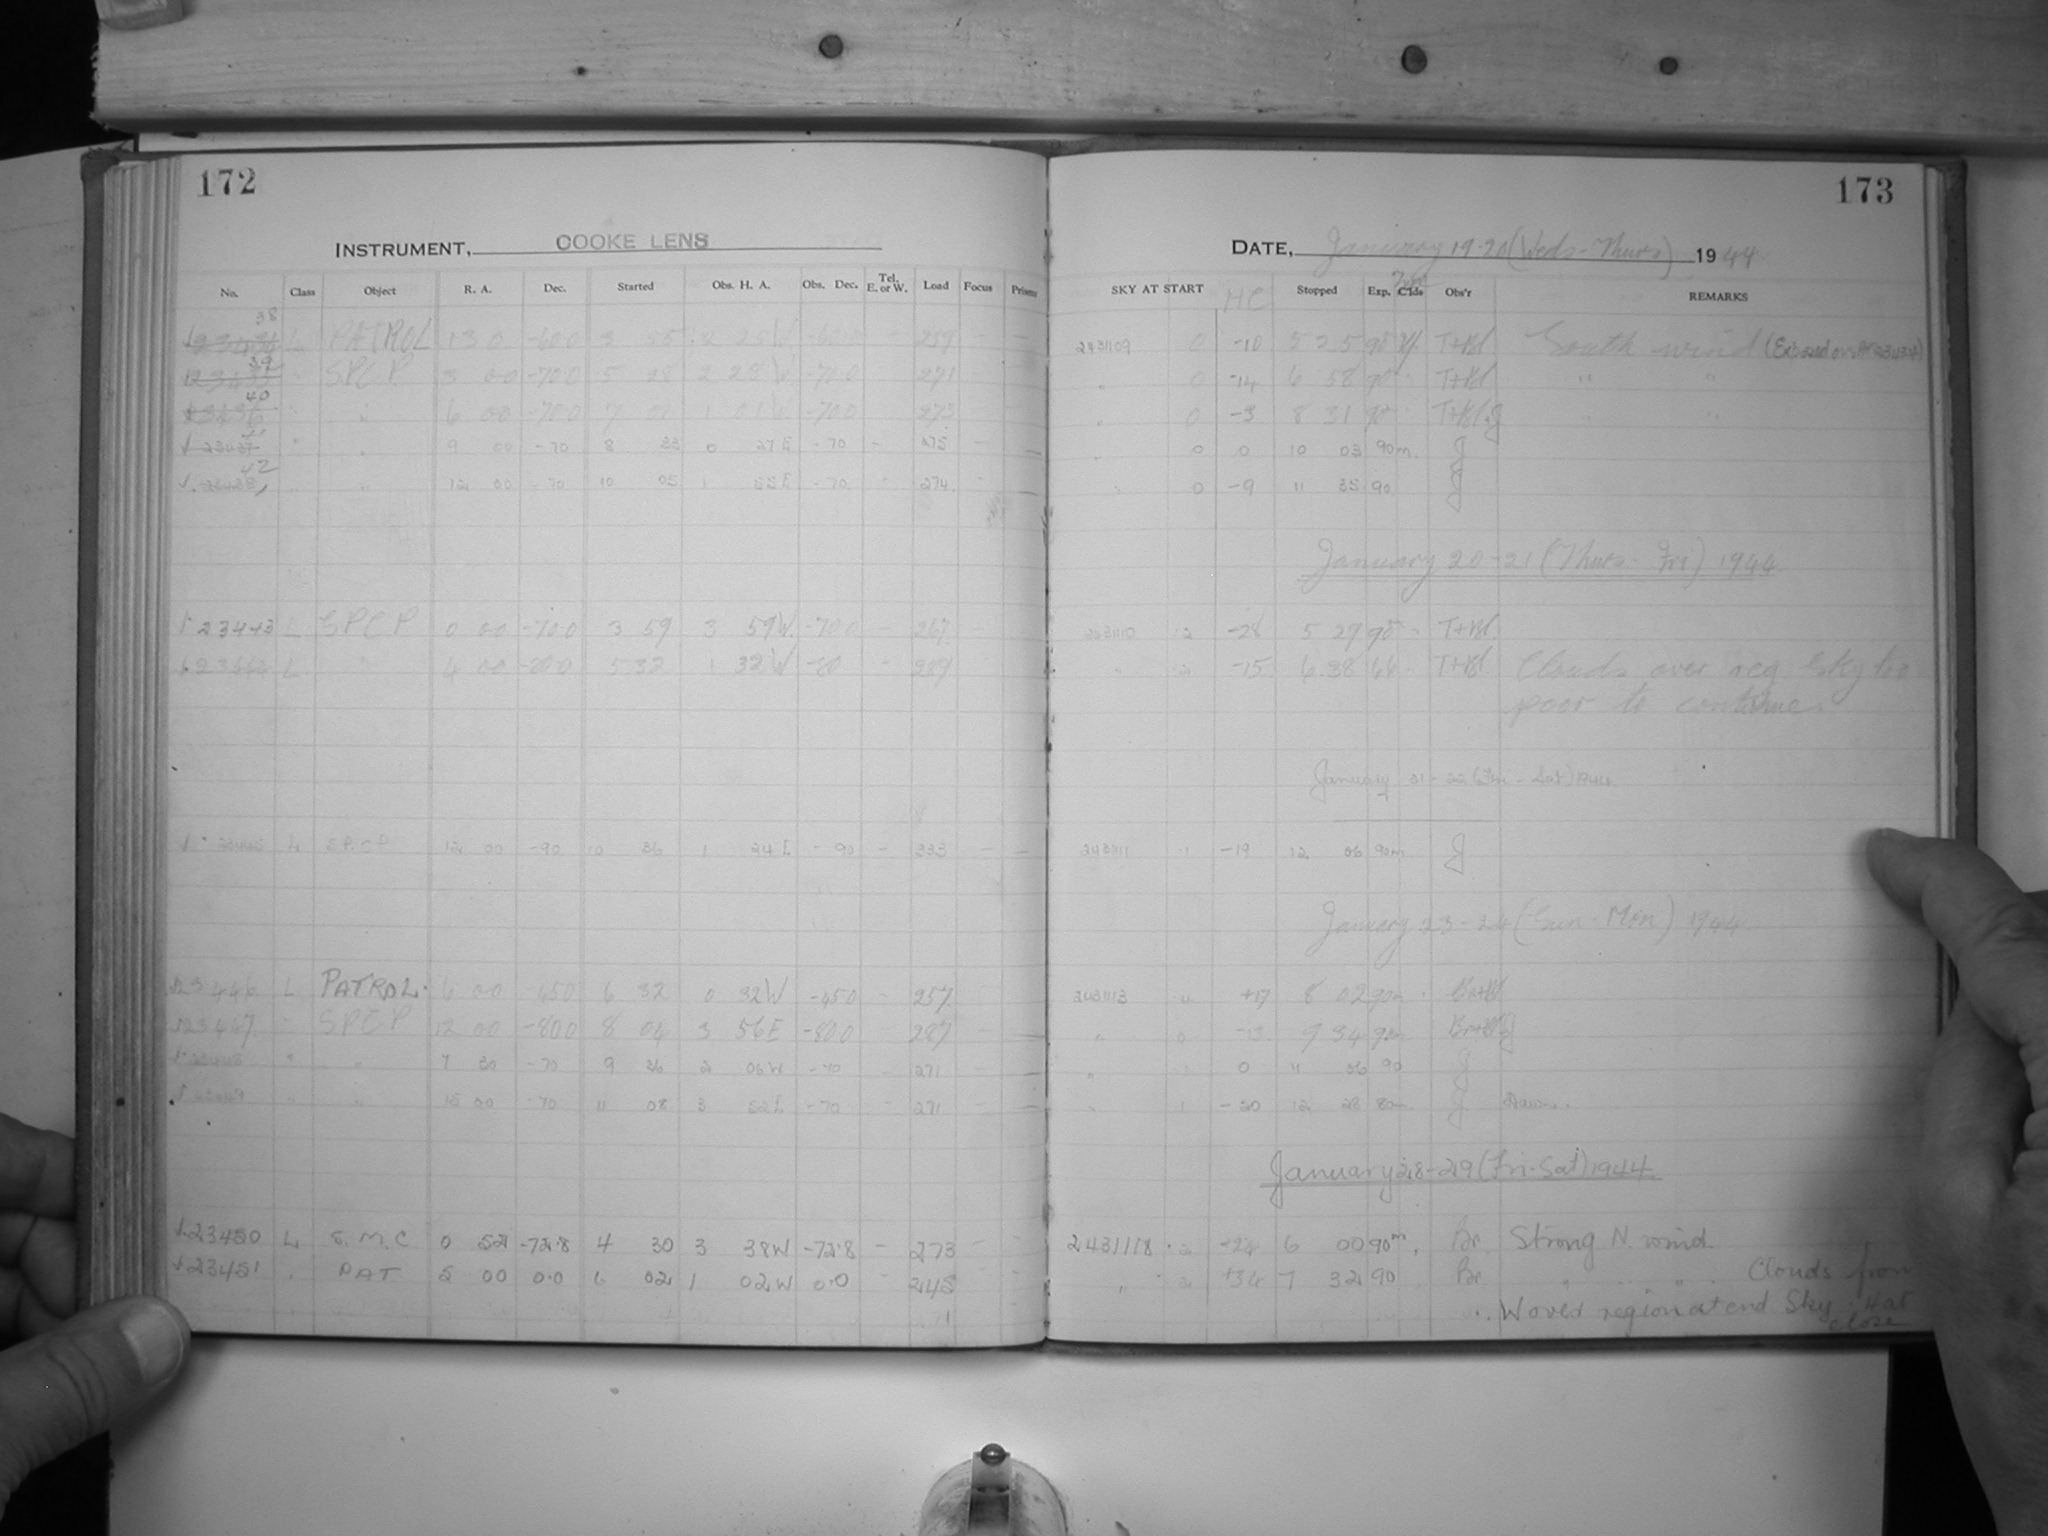 172
INSTRUMENT, COOKE LENS
No. Class Object R. A. Dec. Started Obs. H. A. Obs. Dec. Tel. E. or W. Load Focus Prisms
38
L PATROL 13 0 -60 0 3 55 2 25W -60 0 - 259 - -
39
" SPCP 3 00 -70 0 5 28 2 28W -70 0 271 -
40
23436 " " 6 00 -70 0 7 01 1 01W -70 0 273 -
23437 " " 9 00 -70 8 33 0 27E -70 - 275 - -
42
23438 " " 12 00 -70 10 05 1 55E -70 274 -
23443 L SPCP 0 00 -70 0 3 59 3 59W -70 0 - 267
23444 L 4 00 -80 0 5 32 1 32W -80 289
23445 L SPCP 12 00 -90 10 36 1 24E -90 - 333 - -
23446 L PATROL. 6 00 -45 0 6 32 0 32W -45 0 - 257 -
23447 " SPCP 12 00 -80 0 8 04 3 56E -80 0 287 -
23448 " " 7 30 -70 9 36 2 06W -70 - 271 - -
23449 " " 15 00 -70 11 08 3 52E -70 271 - -
23450 L S.M.C 0 52 -72.8 4 30 3 38W -72.8 - 273
23451 " PAT 5 00 0.0 6 02 1 02W 0.0 245
173
DATE, January 19-20 (Weds-Thurs) 1944
SKY AT START HC Stopped Exp. C'lds Obs'r REMARKS
2431109 0 -10 5 25 90 T+Bl South wind
" 0 -14 6 58 90 T+Bl " "
" 0 -3 8 31 90 T+Bl J " "
" 0 0 10 03 90m. J
" 0 -9 11 35 90 J
January 20-21 (Thurs-Fri) 1944
2431110 2 -28 5 29 90 T+Bl
" 2 -15 6 38 66 T+Bl Clouds over reg Sky too
poor to continue.
January 21-22 (Fri-Sat) 1944
2431111 1 -19 12 06 90m J
January 23-24 (Sun-Mon) 1944
2431113 +17 8 02 90m Br+Bl
" 0 -13 9 34 90m Br+Bl J
" 0 11 06 90 J
" 1 -20 12 28 80m J Dawn.
January 28-29 (Fri-Sat) 1944
2431118 2 +24 6 00 90m. Br. Strong N. wind
" 2 +34 7 32 90 Br " " " Clouds from
W over region at end Sky .4 at
close